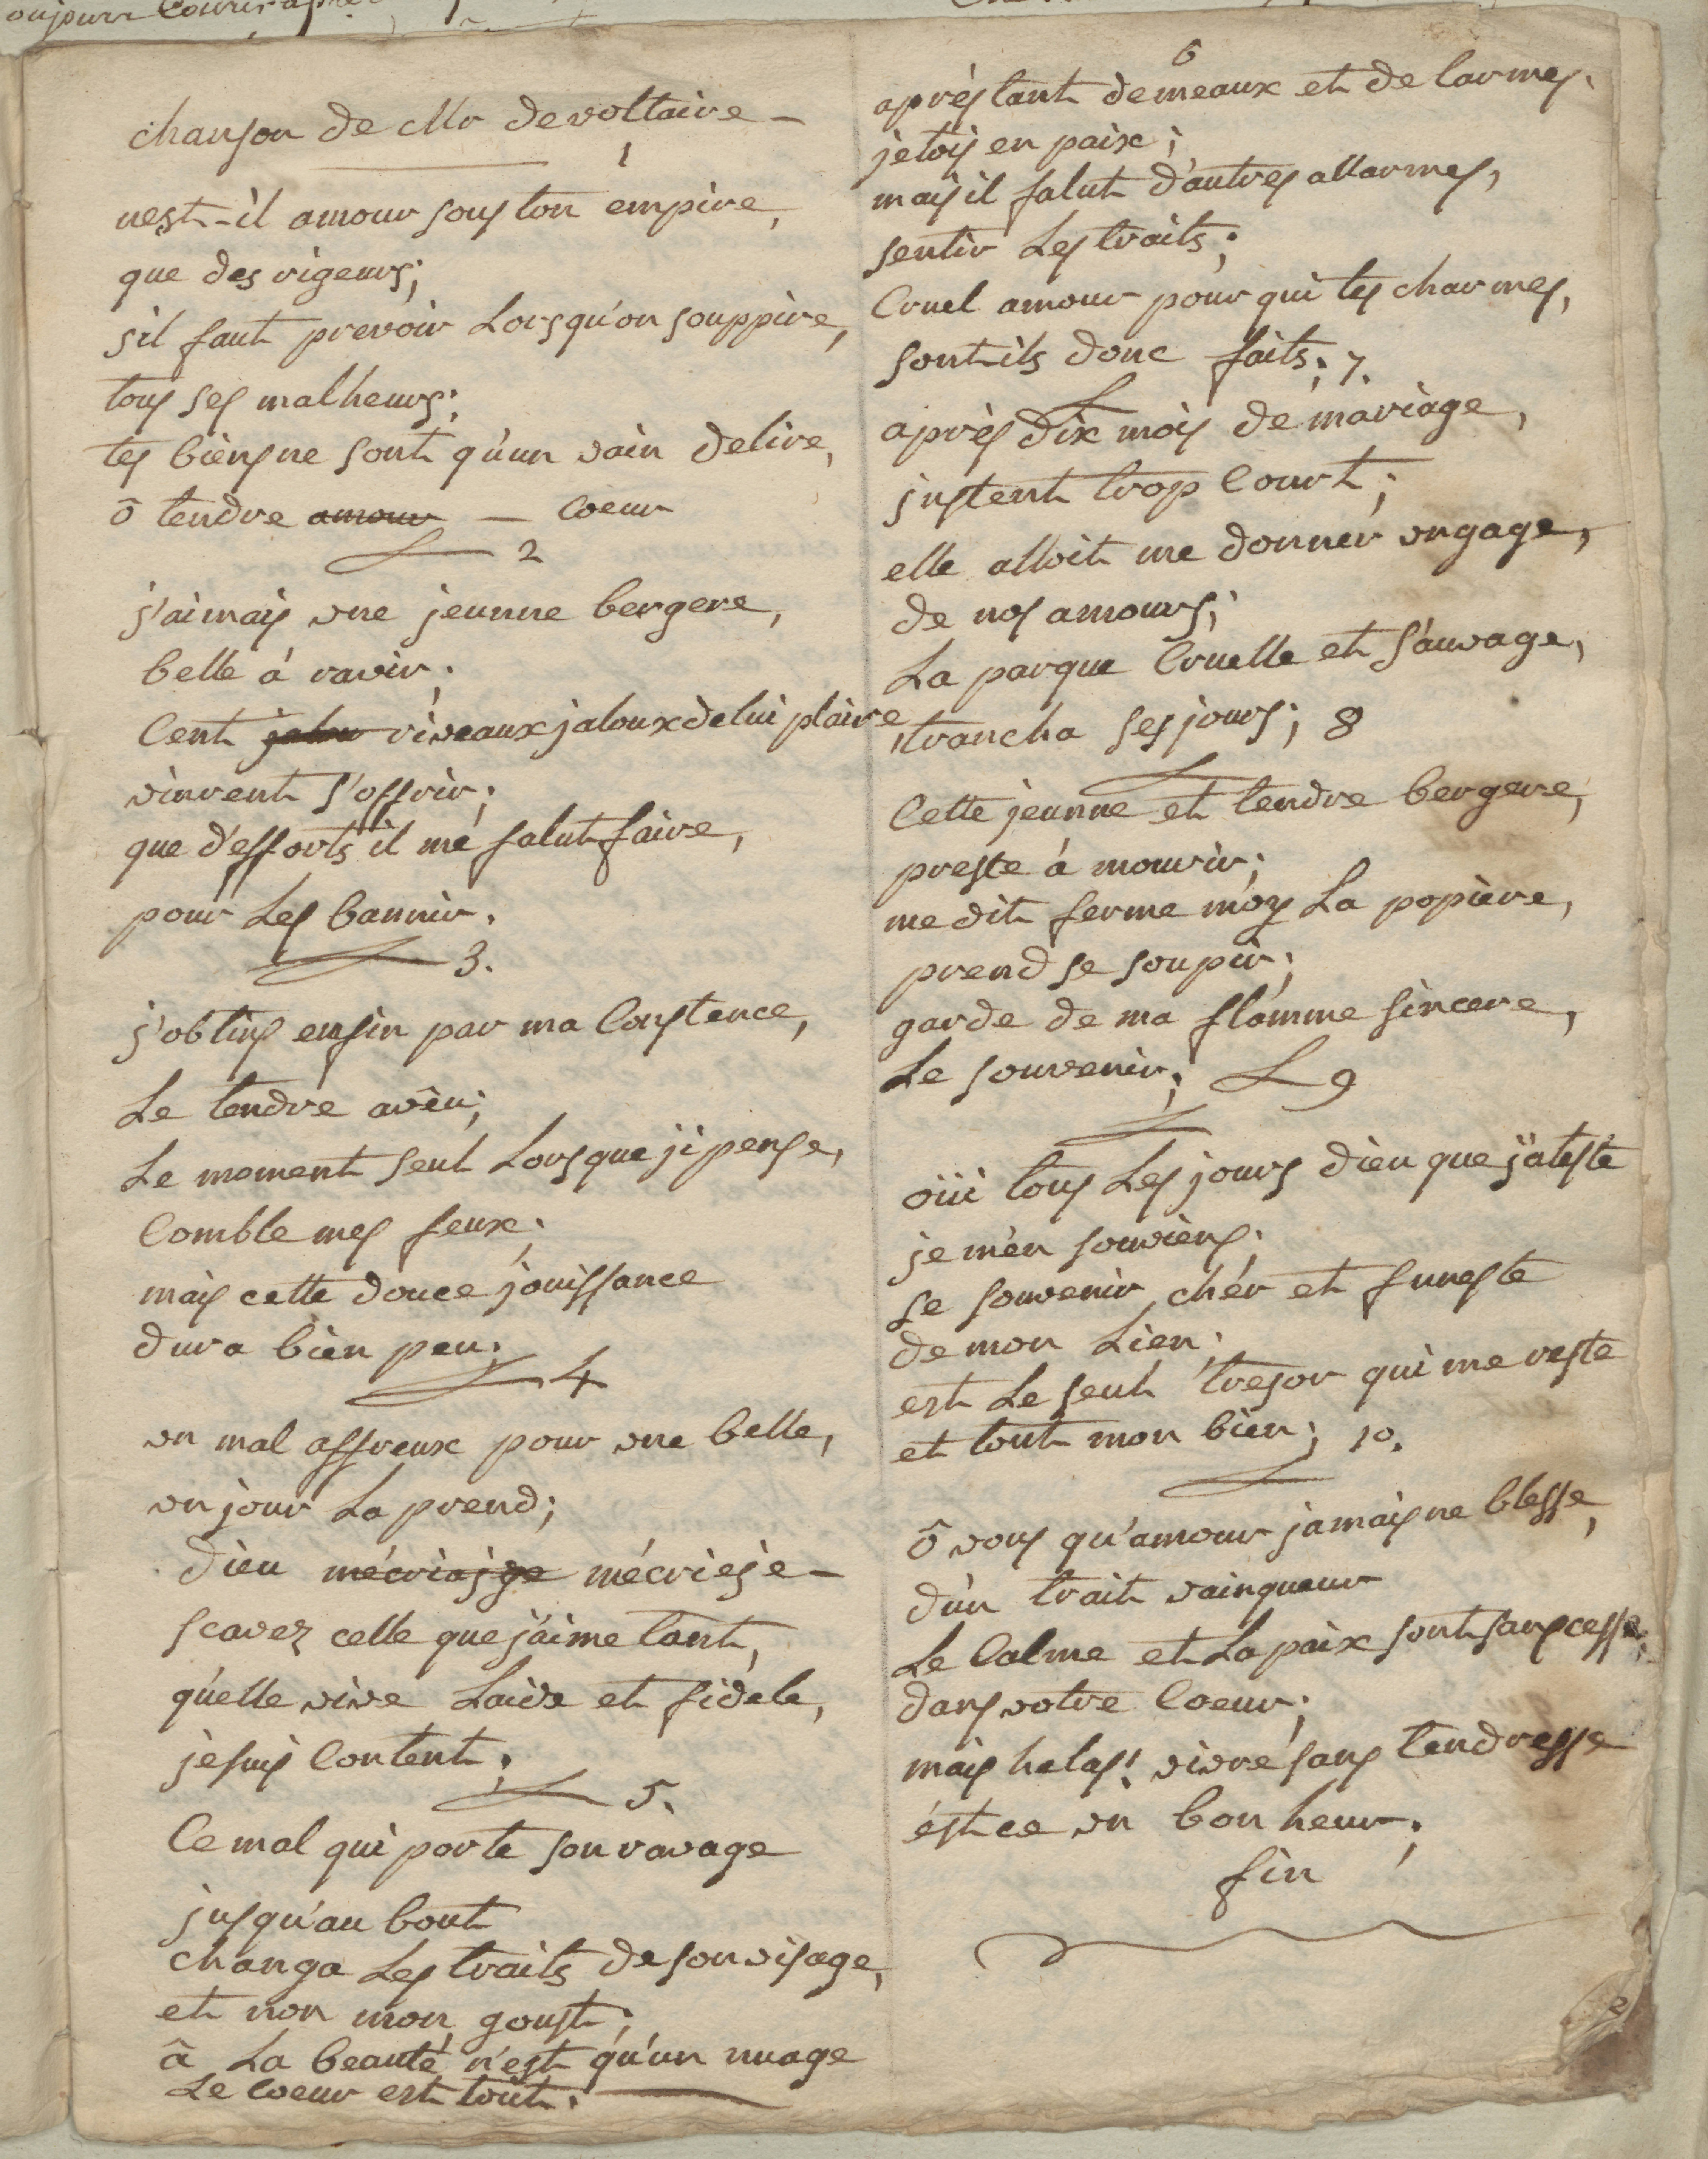 chanson de Mr devoltaire —
1
nest-il amour sous ton empire,
que des rigeurs;
s'il faut prevoir Lorsqu'on souppire,
tous ses malheurs;
tes biens ne sont qu'un vain delire,
ô tendre amour — Coeur
2
j'aimais une jeunne bergere,
belle á ravir;
Cent jalou riveaux jaloux de lui plaire
vinrent s'offrir;
que d'efforts il me falut faire,
pour Les bannir.
3.
j'obtins enfin par ma Constence,
Le tendre avèu;
Le moment seul Lorsque j'i pense,
Comble mes feux;
mais cette douce jouissance
dura bien peu;
4
un mal affreux pour une belle,
un jour La prend;
Dieu mécriaige mécrieje —
scavez celle que j'aime tant,
qu'elle vive Laide et fidele,
je suis Content;
5.
Ce mal qui porte son ravage
jusqu'au bout
changa Les traits de son visage,
et non mon goust;
â La beauté n'est qu'un nuage
Le coeur est tout.
6
aprés tant de meaux et de larmes.
jetois en paix;
mais il falut d'autres allarmes,
sentir Les traits;
Cruel amour pour qui tes charmes,
sont ils donc faits; 7.
après dix mois de mariage,
jnstent trop Court;
elle alloit me donner un gage,
de nos amours;
La parque Cruelle et sauvage,
trancha ses jours; 8
Cette jeunne et tendre bergere,
preste á mourir;
me dit ferme moy La popière,
prend se soupir;
garde de ma flamme sincere,
Le souvenir; 9
oüi tous Les jours dieu que j'ateste
je m'en souviens;
se souvenir cher et funeste
de mon Lien;
est Le seul tresor qui me reste
et tout mon bien; 10.
ô vous qu'amour jamais ne blesse,
d'un trait vainqueur
Le Calme et La paix sont sans cesse,
dans votre Coeur;
mais helas! vivre sans tendresse
est ce un bonheur;
fin